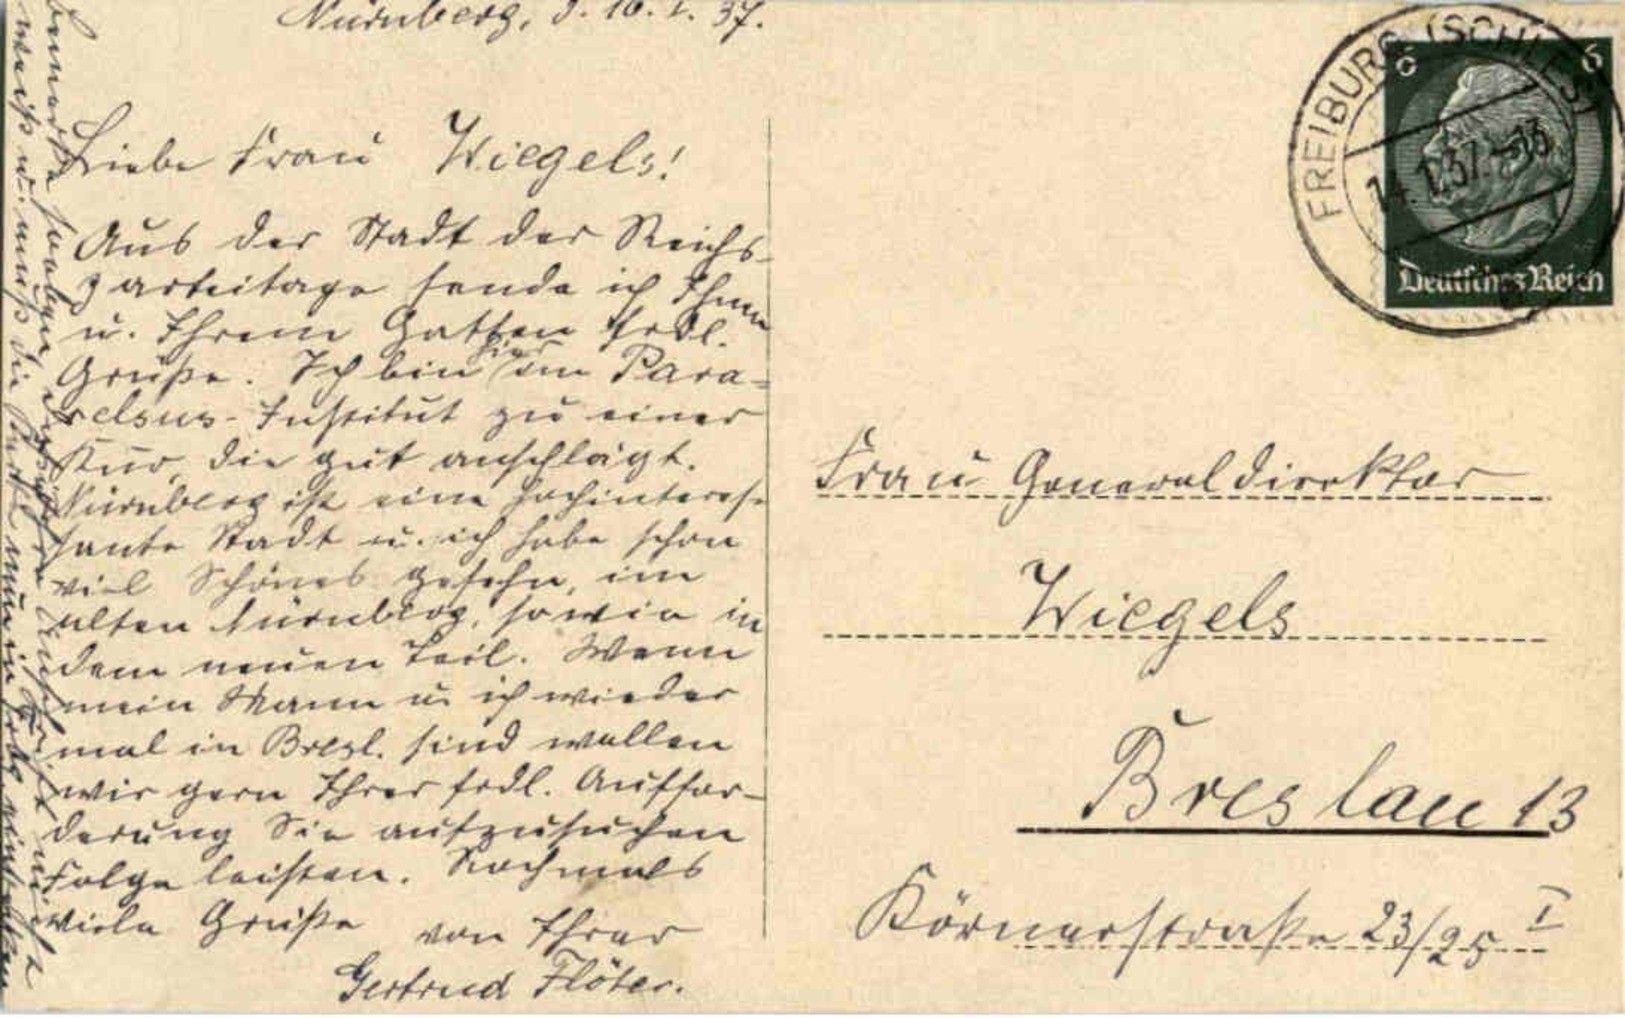 Nürnberg, d. 10. I. 37.
Liebe Frau Wiegels!
Aus der Stadt der Reichs-
parteitage sende ich Ihnen
u. Ihrem Gatten frdl.
Grüße. Ich bin hier im Para-
celsus-Institut zu einer
Kur, die gut anschlägt.
Nürnberg ist eine hochinteres-
sante Stadt u. ich habe schon
viel Schönes gesehn, im
alten Nürnberg, sowie in
dem neuen Teil. Wenn
mein Mann u. ich wieder
mal in Bresl. sind wollen
wir gern Ihrer frdl. Auffor-
derung Sie aufzusuchen
Folge leisten. Nochmals
viele Grüße von Ihrer
Gertrud Flöter.
FREIBURG (SCHLES)
14.1.37.
6 6
Deutsches Reich
Frau Generaldirektor
Wiegels
Breslau 13
Körnerstraße 23/25 I